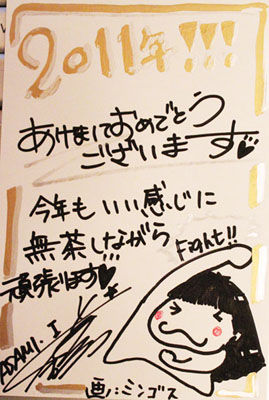 2011年!!!
あけましておめでとう
ございます
今年もいい感じに
無茶しながら
Fight!!
頑張ります
ASAMI.I
画:ミンゴス